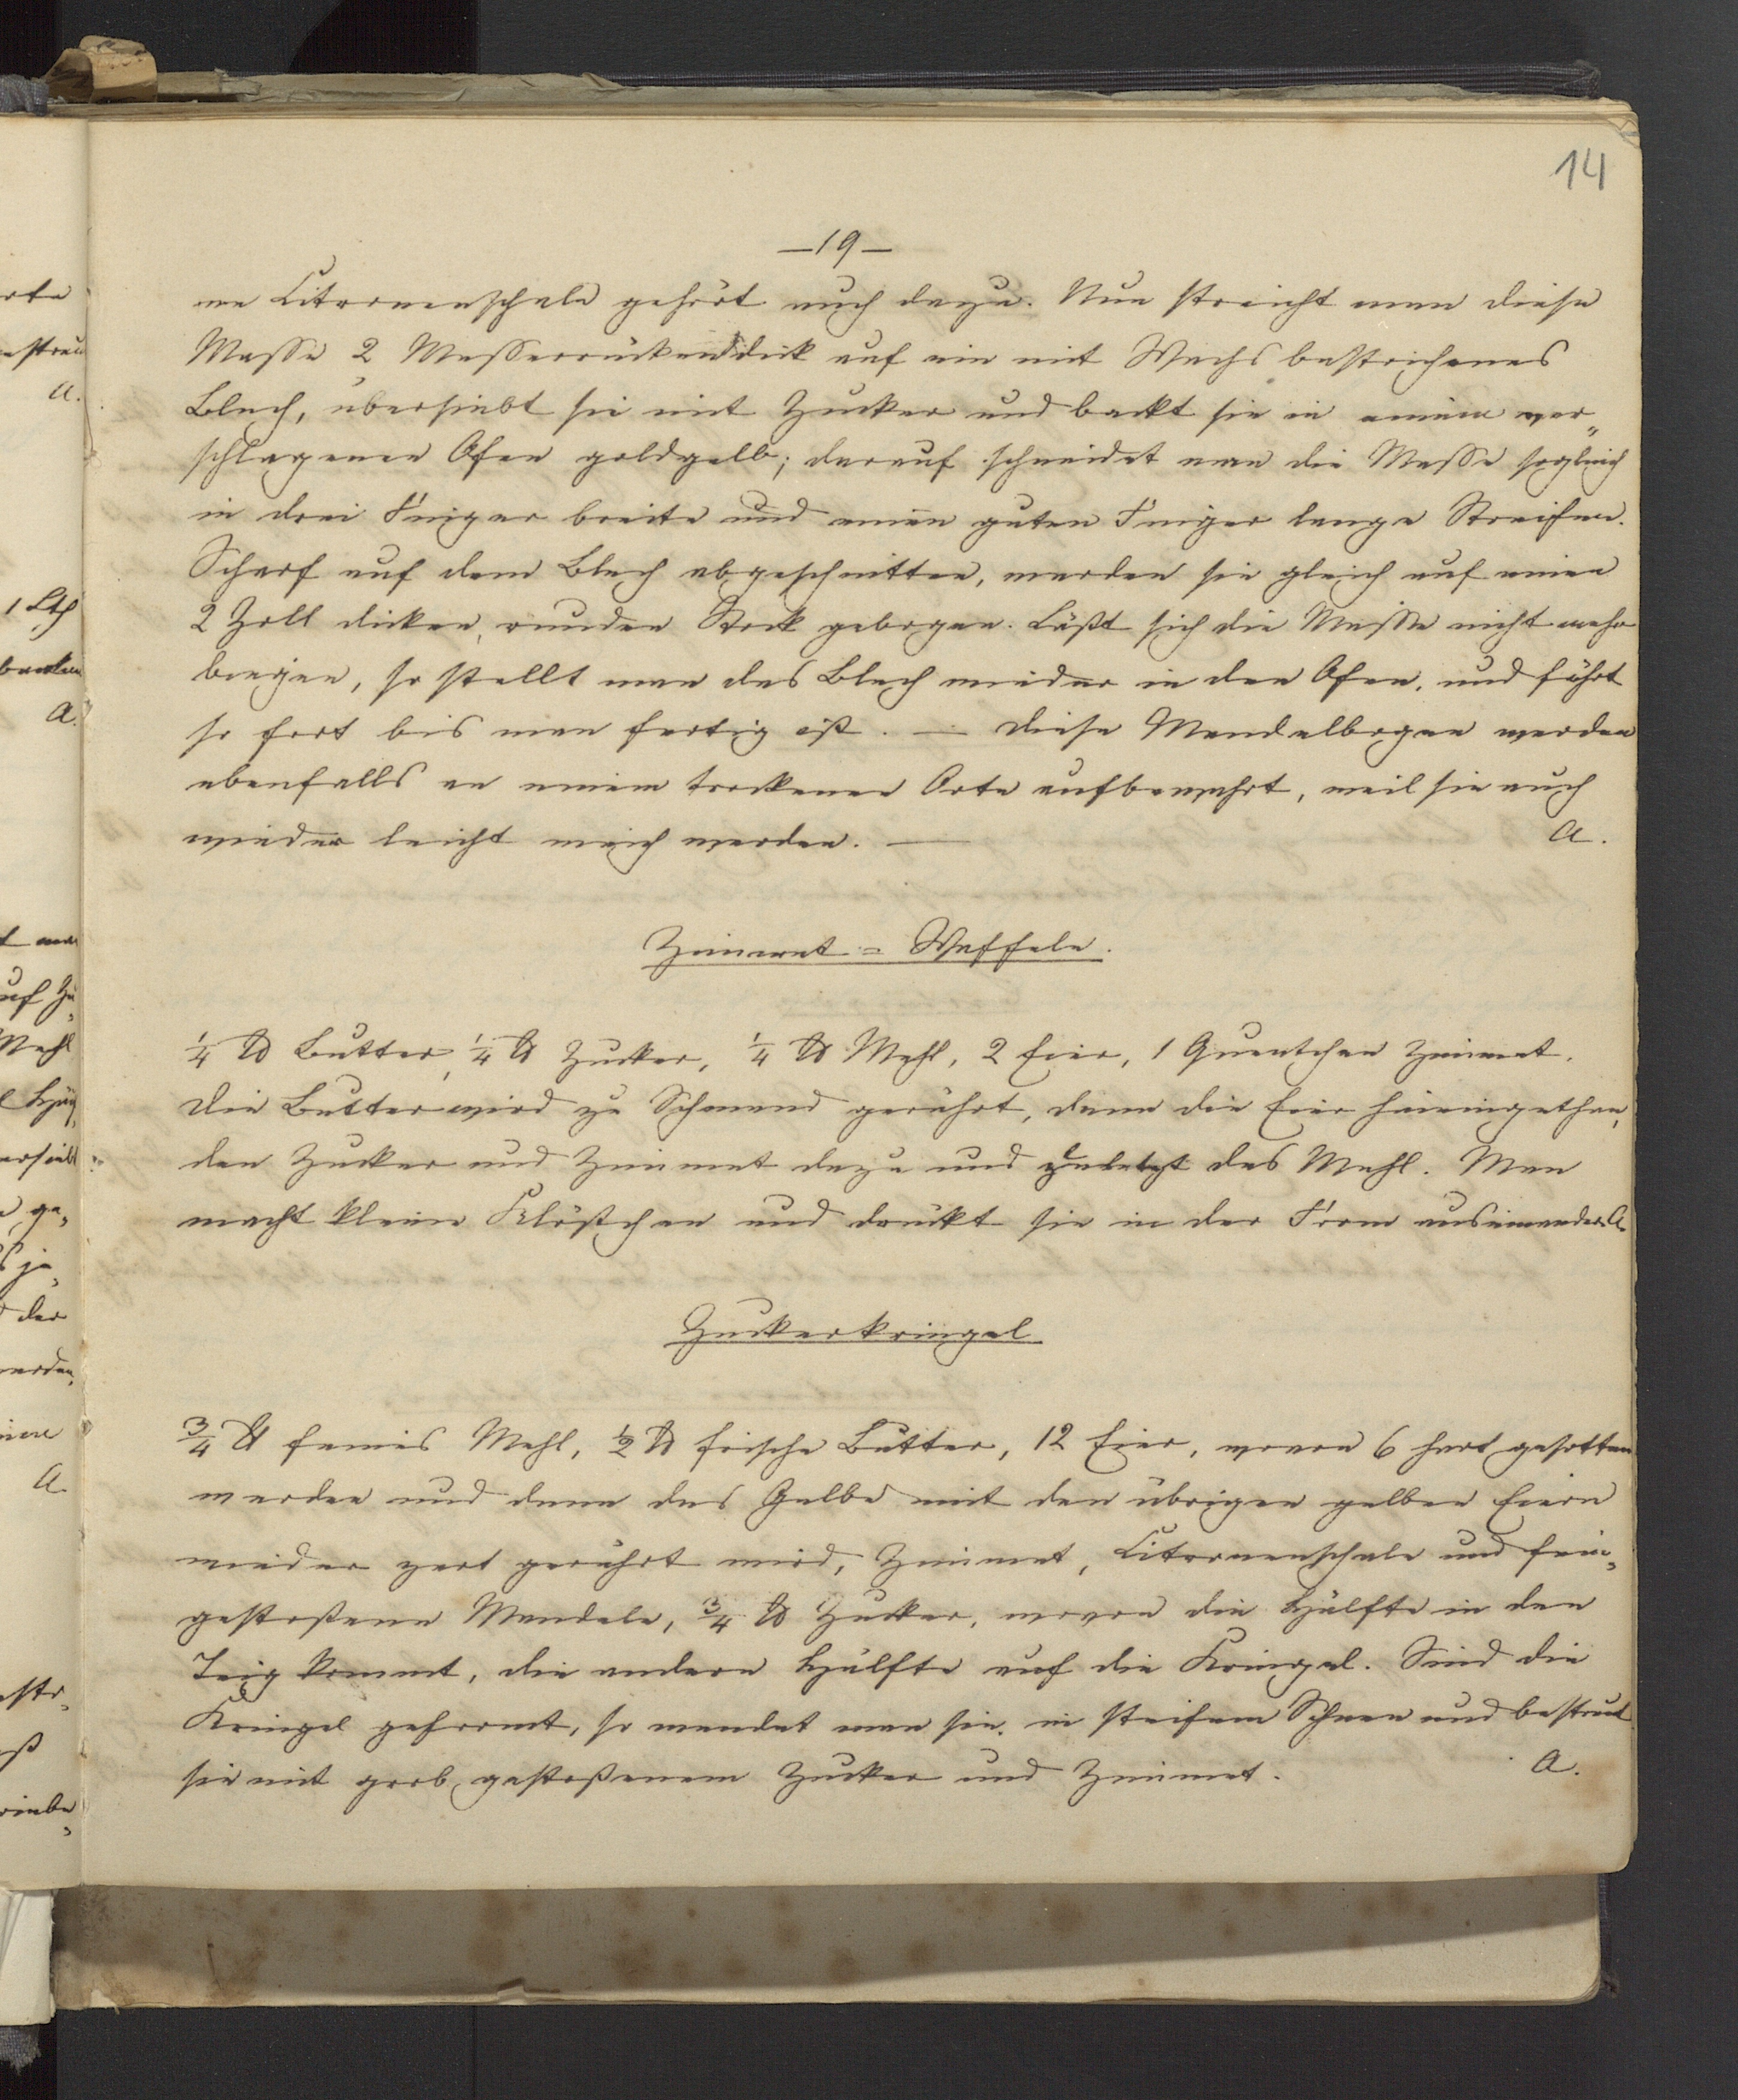 14
—19—
ne Citronenschale gehört auch dazu. Nun streicht man diese
Masse 2 Messerrückendick auf ein mit Wachs bestrichenes
Blech, übersiebt sie mit Zucker und backt sie in einem ver„
schlagenen Ofen goldgelb; darauf schneidet man die Masse sogleich
in drei Finger breite und einen guten Finger lange Streifen.
Scharf auf dem Blech abgeschnitten, werden sie gleich auf einen
2 Zoll dicken, runden Stock gebogen. Läßt sich die Masse nicht mehr
biegen, so stellt man das Blech wieder in den Ofen, und fährt
so fort bis man fertig ist. — Diese Mandelbogen werden
ebenfalls an einem trockenen Orte aufbewahrt, weil sie auch
wieder leicht weich werden. — A.
Zimmet = Waffeln.
1/4 ℔ Butter, 1/4 ℔ Zucker, 1/4 ℔ Mehl, 2 Eier, 1 Quentchen Zimmet.
Die Butter wird zu Schmand gerührt, dann die Eier hineingethan,
den Zucker und Zimmet dazu und zuletzt das Mehl. Man
macht kleine Klößchen und drückt sie in der Form auseinander. A.
Zuckerkringel
3/4 ℔ feines Mehl, 1/2 ℔ frische Butter, 12 Eier, wovon 6 hart gesotten
werden und dann das Gelbe mit den übrigen gelben Eiern
wieder zart gerührt wird, Zimmet, Citronenschale und fein„
gestoßene Mandeln, 3/4 ℔ Zucker, wovon die Hälfte in den
Teig kommt, die andere Hälfte auf die Kringel. Sind die
Kringel geformt, so wendet man sie in steifem Schnee und bestreut
sie mit grob gestoßenem Zucker und Zimmet. A.